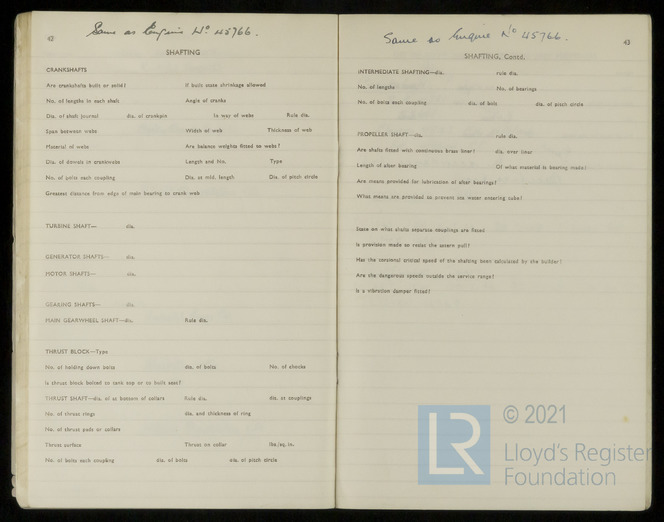 42
Same as Engine No 45766.
SHAFTING
CRANKSHAFTS
Are crankshafts built or solid? If built state shrinkage allowed
No. of lengths in each shaft Angle of cranks
Dia. of shaft journal dia. of crankpin in way of webs Rule dia.
Span between webs Width of web Thickness of web
Material of webs Are balance weights fitted to webs?
Dia. of dowels in crankwebs Length and No. Type
No. of bolts each coupling Dia. at mid. length Dia. of pitch circle
Greatest distance from edge of main bearing to crank web
TURBINE SHAFT— dia.
GENERATOR SHAFTS— dia.
MOTOR SHAFTS— dia.
GEARING SHAFTS— dia.
MAIN GEARWHEEL SHAFT—dia. Rule dia.
THRUST BLOCK—Type
No. of holding down bolts dia. of bolts No. of chocks
Is thrust block bolted to tank top or to built seat?
THRUST SHAFT—dia. at bottom of collars Rule dia. dia. at couplings
No. of thrust rings dia. and thickness of ring
No. of thrust pads or collars
Thrust surface Thrust on collar lbs/sq. in.
No. of bolts each coupling dia. of bolts dia. of pitch circle
Same as Engine No 45766.
43
SHAFTING, Contd.
INTERMEDIATE SHAFTING—dia. rule dia.
No. of lengths No. of bearings
No. of bolts each coupling dia. of bolt dia. of pitch circle
PROPELLER SHAFT—dia. rule dia.
Are shafts fitted with continuous brass liner? dia. over liner
Length of after bearing Of what material is bearing made?
Are means provided for lubrication of after bearings?
What means are provided to prevent sea water entering tube?
State on what shafts separate couplings are fitted
Is provision made to resist the astern pull?
Has the torsional critical speed of the shafting been calculated by the builder?
Are the dangerous speeds outside the service range?
Is a vibration damper fitted?
LR
© 2021
Lloyd's Register
Foundation